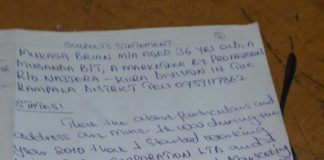 SUSPECTS STATEMENT
MUKASA BRIAN M/A AGED 36 YRS OLD, A
MUGANDA B/T, A MARKETEER BY PROFESSION
R/O NAJJERA - KIRA DIVISION IN THE
KAMPALA DISTRICT TEL: 0759117862
STATES:
That the above particulars and
address are mine. It was during the
year 2010 that I started working
CORPORATION LTD and